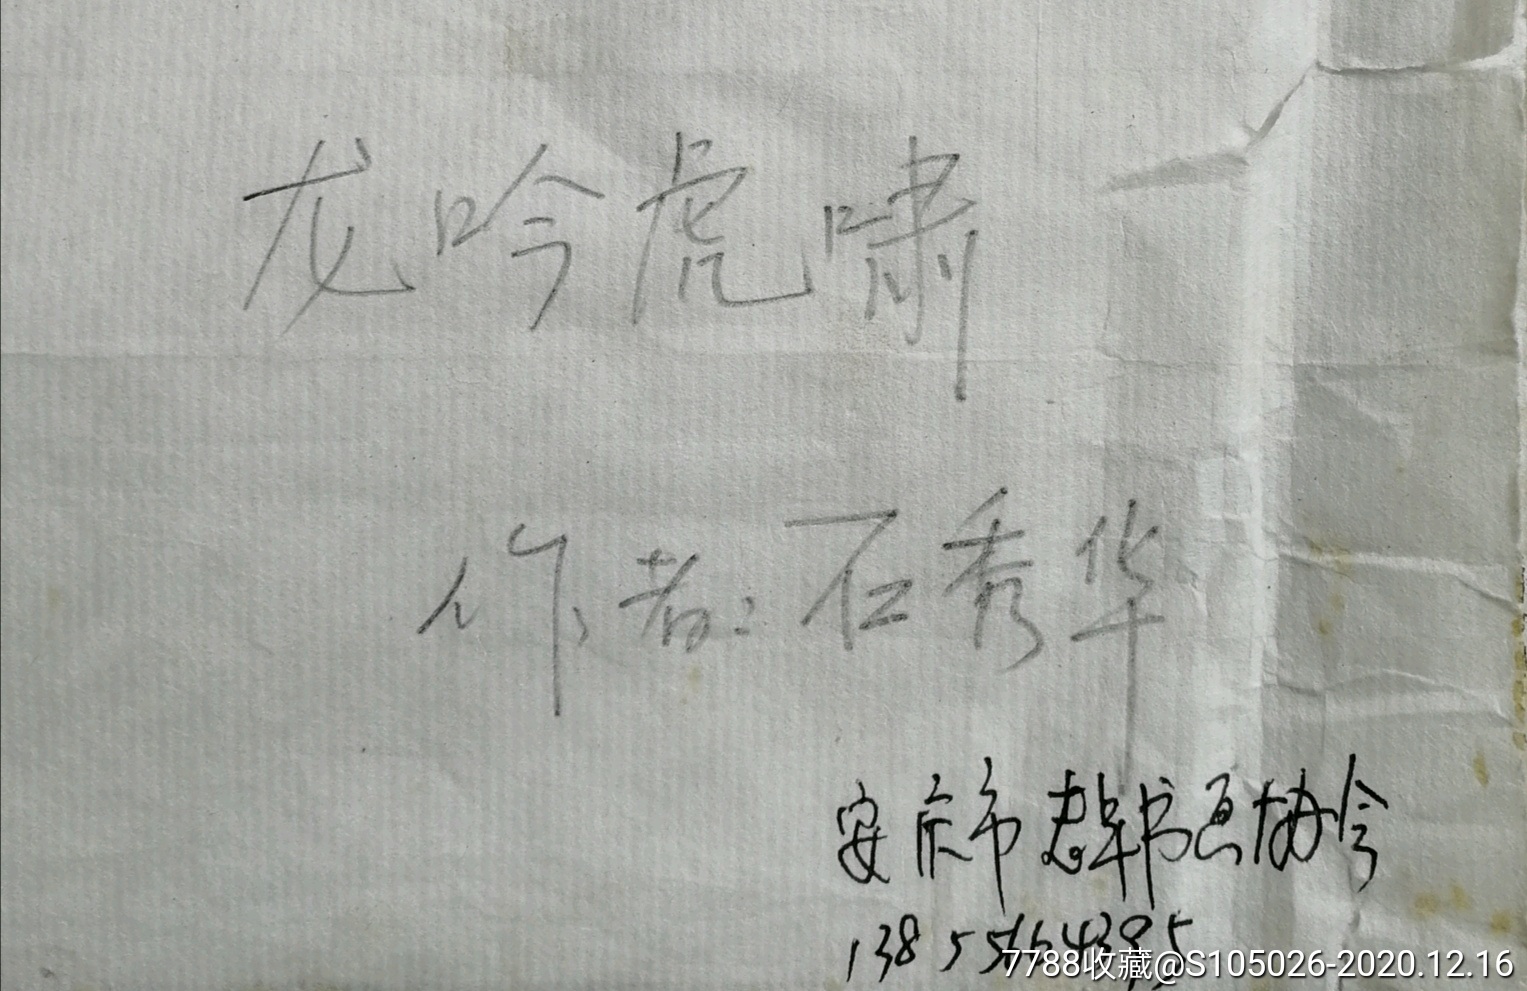 龙吟虎啸
作者:石秀华
安庆市老年书画协会
7788收藏@S105026-2020.12.16